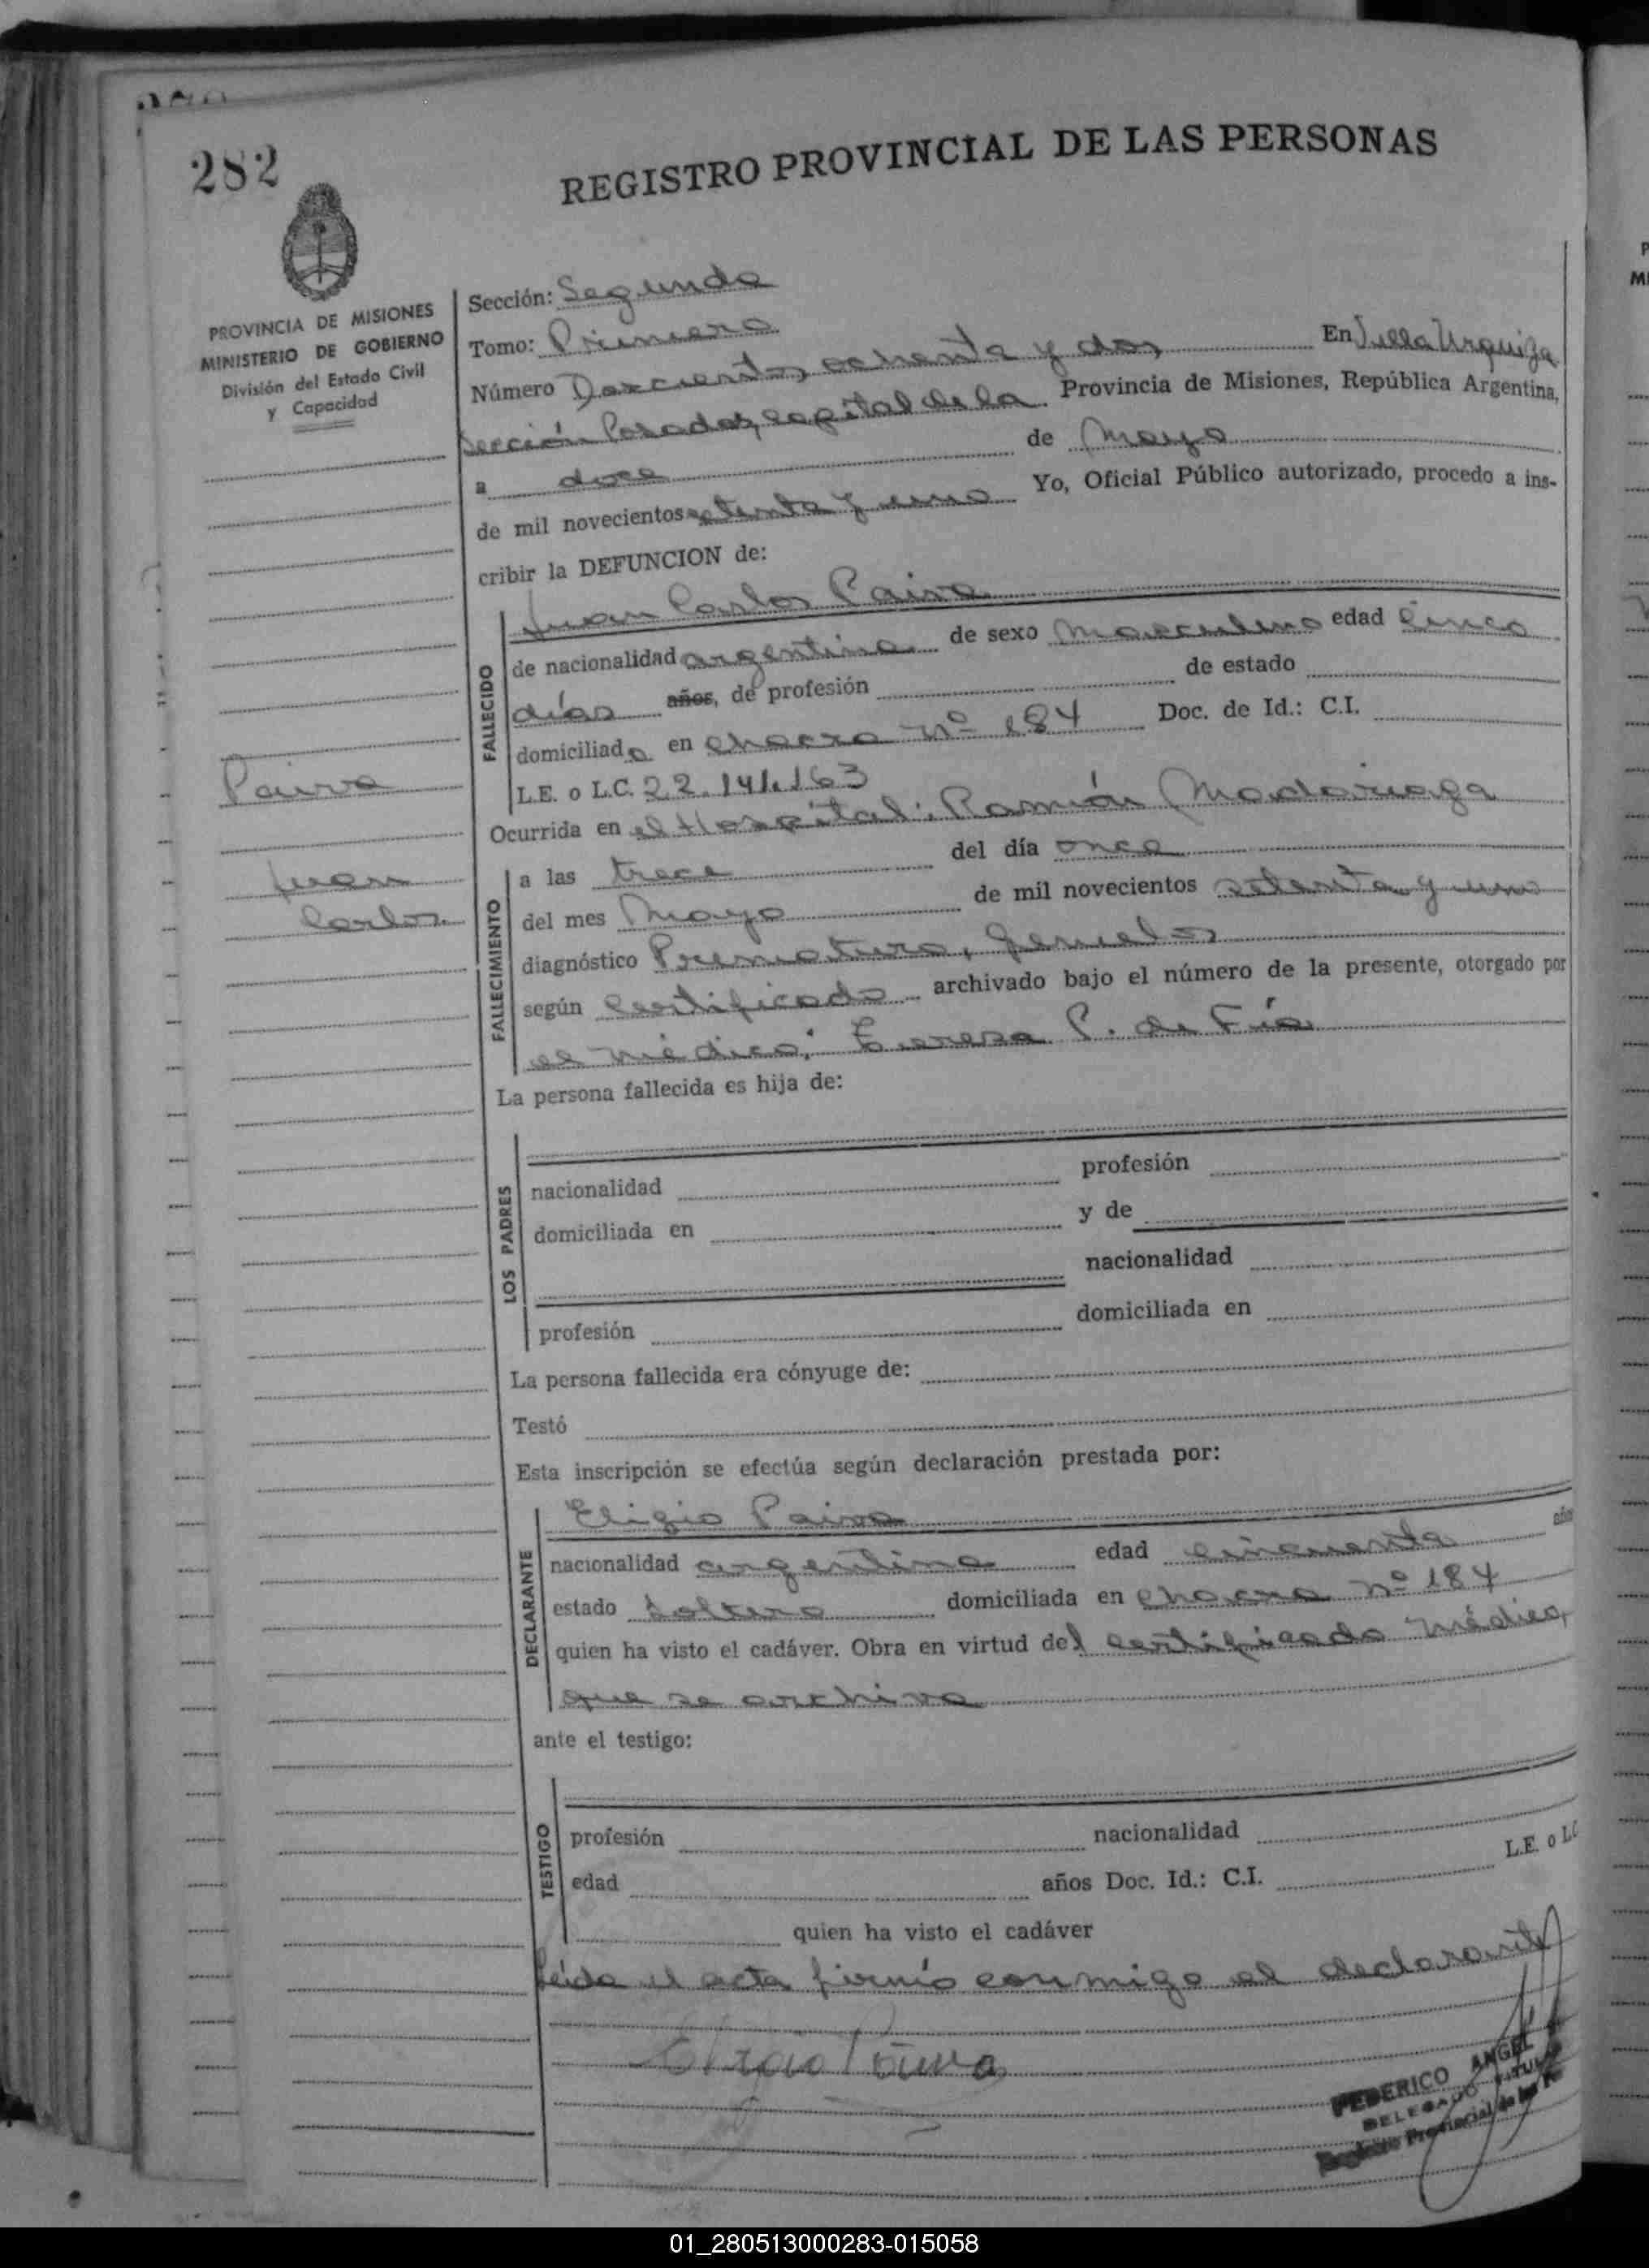 282
REGISTRO PROVINCIAL DE LAS PERSONAS
PROVINCIA DE MISIONES
MINISTERIO DE GOBIERNO
División del Estado Civil
y Capacidad
Paiva
Juan
Carlos
Sección: Segunda
Tomo: Primero
Número Doscientos ochenta y dos En Villa Urquiza
Sección Posadas, capital de la Provincia de Misiones, República Argentina,
a doce de Mayo
de mil novecientos setenta y uno Yo, Oficial Público autorizado, procedo a ins-
cribir la DEFUNCION de:
FALLECIDO
Juan Carlos Paiva
de nacionalidad argentina de sexo masculino edad cinco
días años, de profesión de estado
domiciliado en chacra nº 184 Doc. de Id.: C.I.
L.E. o L.C. 22.141.163
Ocurrida en el Hospital: Ramón Madariaga
FALLECIMIENTO
a las trece del día once
del mes Mayo de mil novecientos setenta y uno
diagnóstico Prematuro, gemelos
según certificado archivado bajo el número de la presente, otorgado por
el médico: Teresa P. de Fía
La persona fallecida es hija de:
LOS PADRES
nacionalidad profesión
domiciliada en y de
nacionalidad
profesión domiciliada en
La persona fallecida era cónyuge de:
Testó
Esta inscripción se efectúa según declaración prestada por:
DECLARANTE
Eligio Paiva
nacionalidad argentina edad cincuenta años
estado soltero domiciliada en chacra nº 184
quien ha visto el cadáver. Obra en virtud del certificado médico,
que se archiva
ante el testigo:
TESTIGO
profesión nacionalidad
edad años Doc. Id.: C.I. L.E. o LC
quien ha visto el cadáver
Leída el acta firmó conmigo el declarante
Eligio Paiva
FEDERICO ANGEL
DELEGADO TITULAR
Registro Provincial de las Pe
01_280513000283-015058